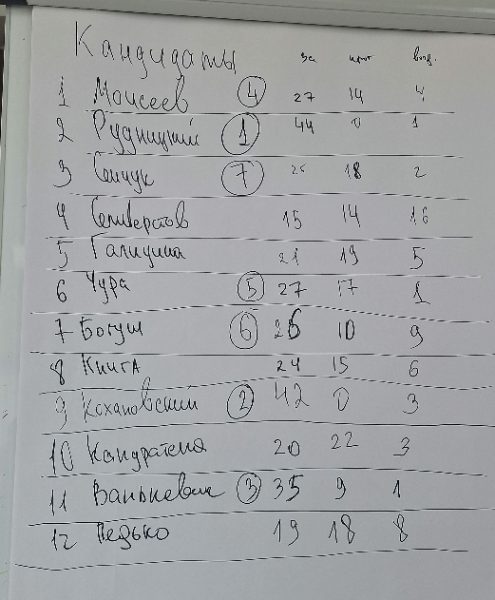 Кандидаты за прот возд.
1 Моисеев 4 27 14 4
2 Рудницкий 1 44 0 1
3 Сенчук 7 26 18 2
4 Селиверстов 15 14 16
5 Галицина 21 19 5
6 Чура 5 27 17 1
7 Богуш 6 26 10 9
8 Книга 24 15 6
9 Кохановский 2 42 0 3
10 Кандратеня 20 22 3
11 Ванькевич 3 35 9 1
12 Педько 19 18 8